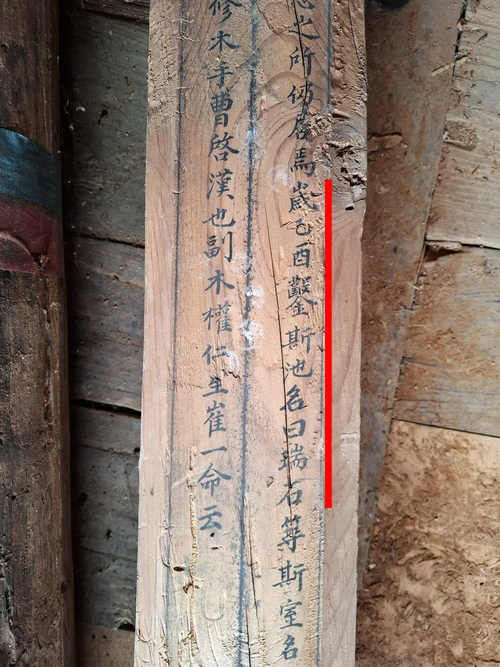 之所仍居焉歲乙酉鑿斯池名曰瑞石斯室名
修木手曹啓漢也副木權仁生崔一命云